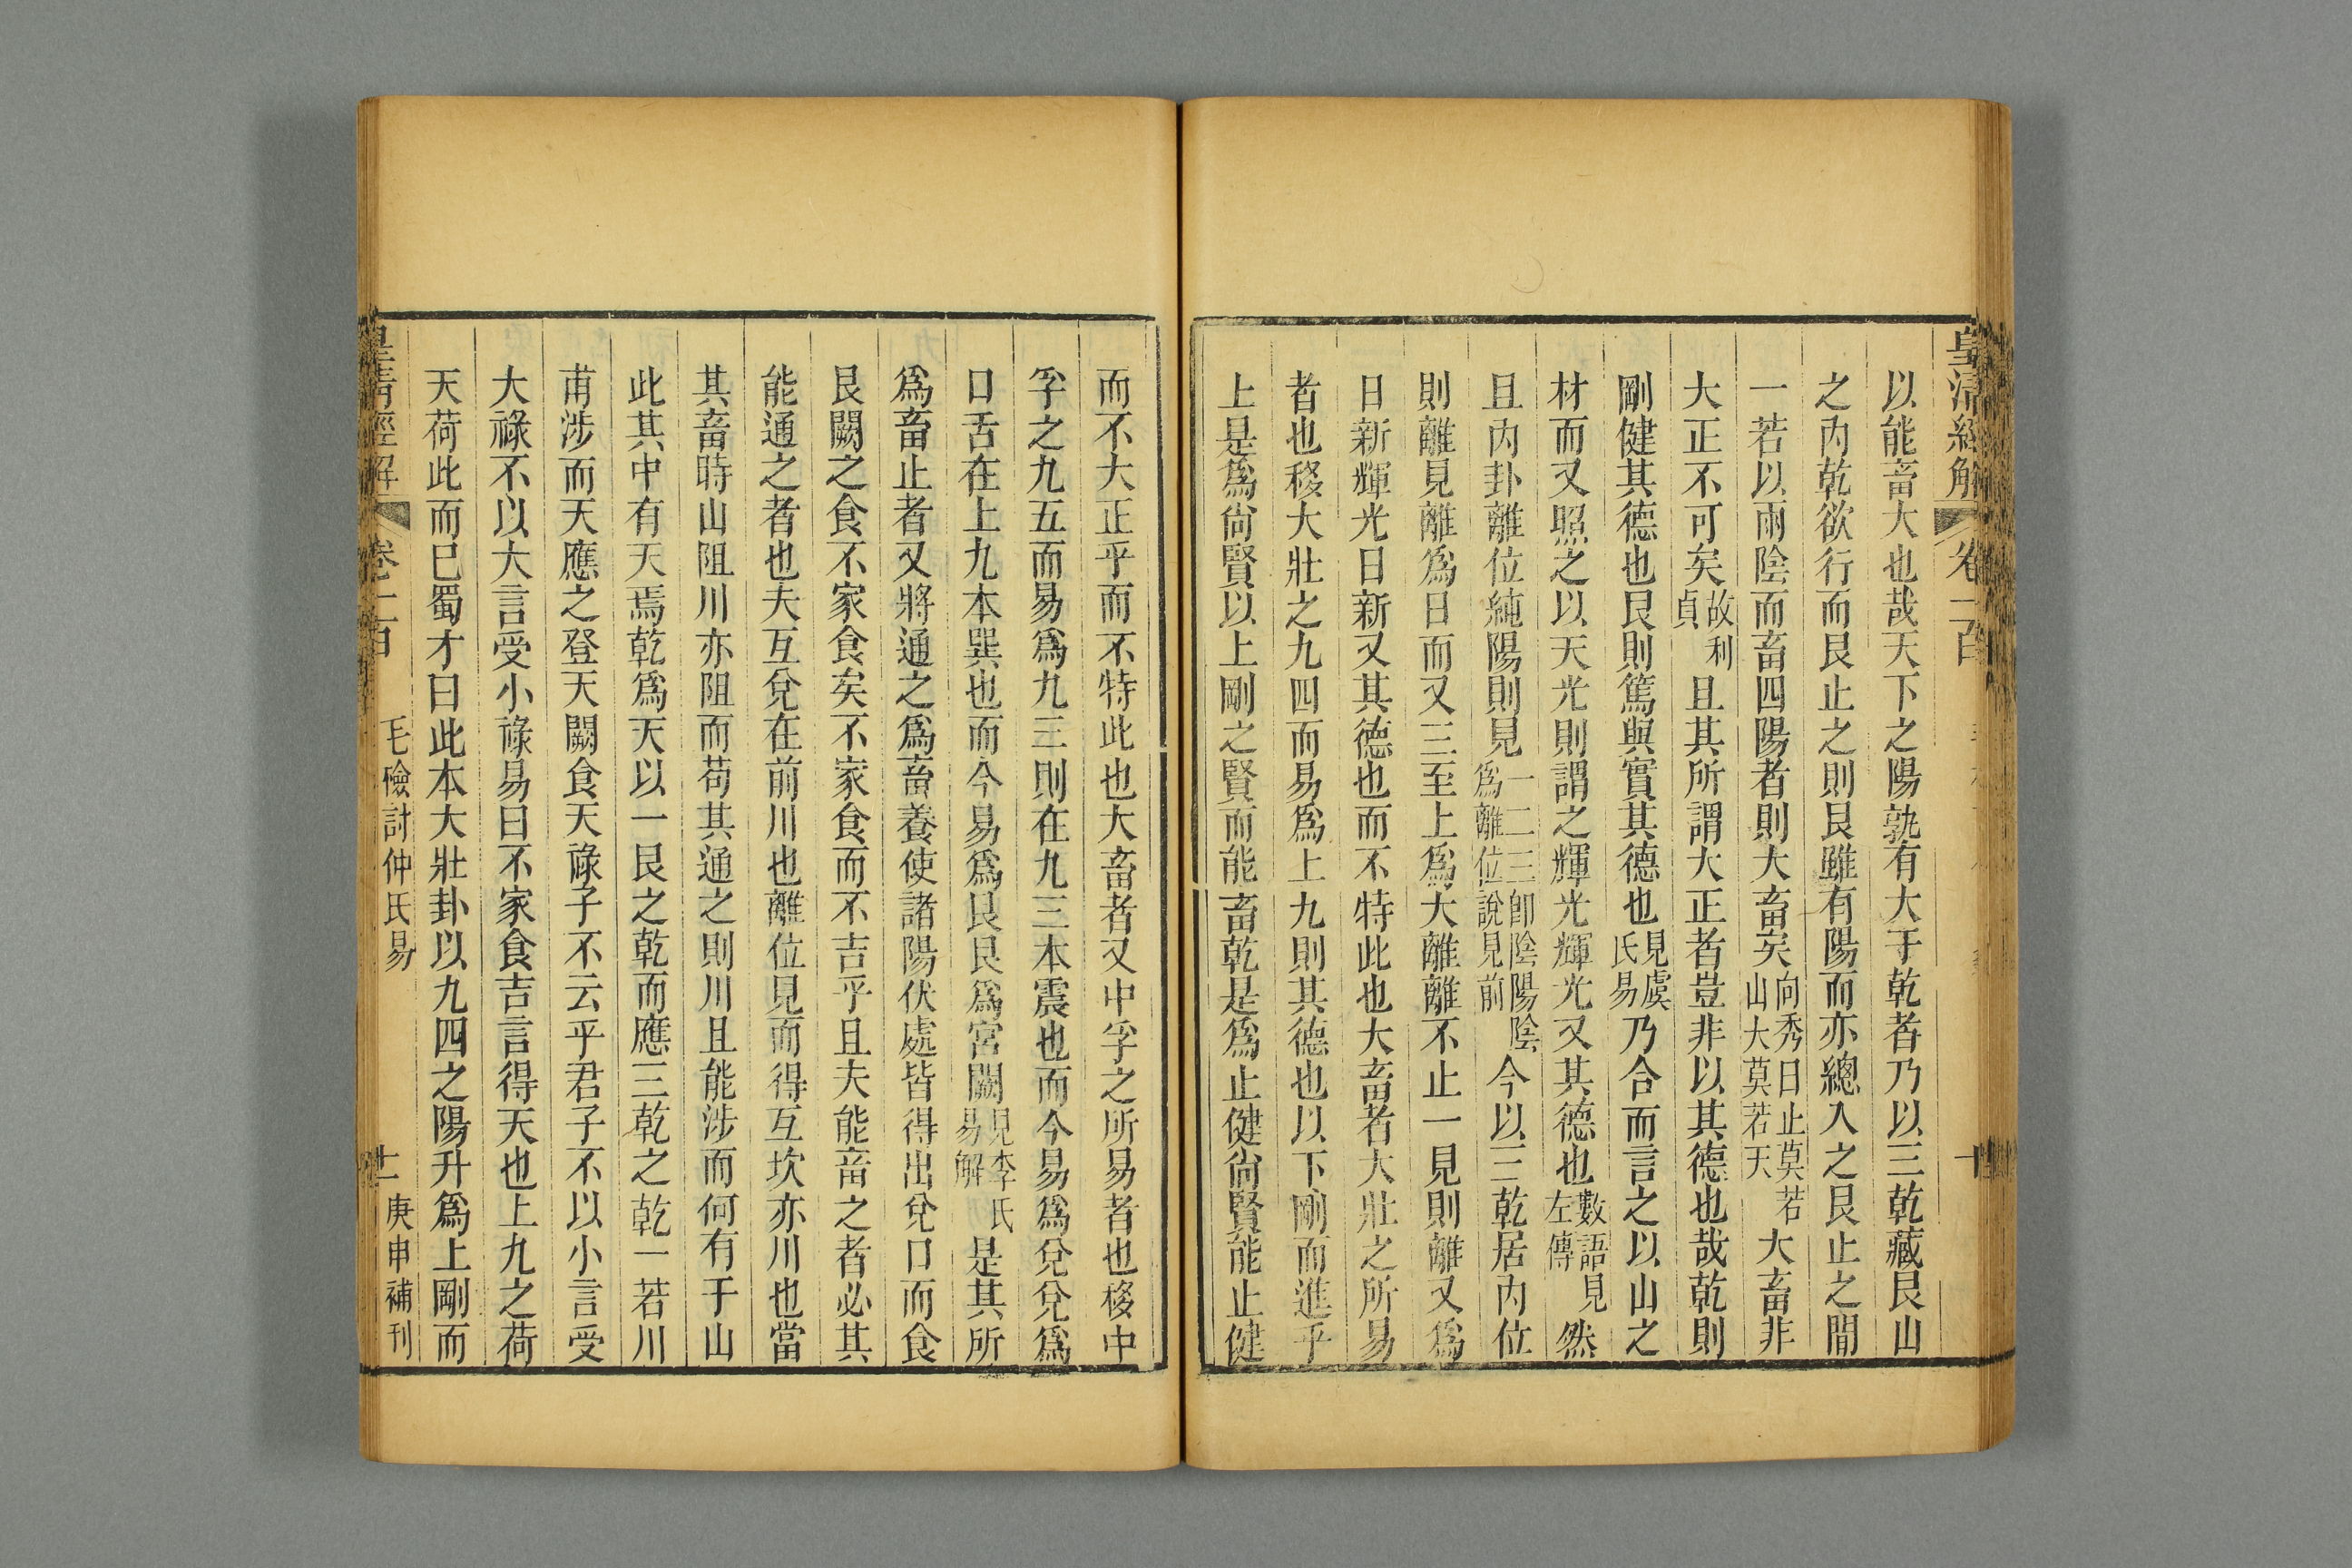 皇清經解 卷一百
以能畜大也哉天下之陽孰有大于乾者乃以三乾藏艮山
之內乾欲行而艮止之則艮雖有陽而亦總入之艮止之間
一若以兩陰而畜四陽者則大畜矣向秀曰止莫若山大莫若天大畜非
大正不可矣故利貞且其所謂大正者豈非以其德也哉乾則
剛健其德也艮則篤與實其德也見虞氏易乃合而言之以山之
材而又照之以天光則謂之輝光輝光又其德也數語見左傳然
且內卦離位純陽則見一二三卽陰陽陰爲離位說見前今以三乾居內位
則離見離爲日而又三至上爲大離離不止一見則離又爲
日新輝光日新又其德也而不特此也大畜者大壯之所易
者也移大壯之九四而易爲上九則其德也以下剛而進乎
上是爲尙賢以上剛之賢而能畜乾是爲止健尙賢能止健
而不大正乎而不特此也大畜者又中孚之所易者也移中
孚之九五而易爲九三則在九三本震也而今易爲兌兌爲
口舌在上九本巽也而今易爲艮艮爲宮闕見李氏易解是其所
爲畜止者又將通之爲畜養使諸陽伏處皆得出兌口而食
艮闕之食不家食矣不家食而不吉乎且夫能畜之者必其
能通之者也夫互兌在前川也離位見而得互坎亦川也當
其畜時山阻川亦阻而苟其通之則川且能涉而何有于山
此其中有天焉乾爲天以一艮之乾而應三乾之乾一若川
甫涉而天應之登天闕食天祿子不云乎君子不以小言受
大祿不以大言受小祿易曰不家食吉言得天也上九之荷
天荷此而已蜀才曰此本大壯卦以九四之陽升爲上剛而
皇清經解 毛檢討仲氏易 庚申補刊